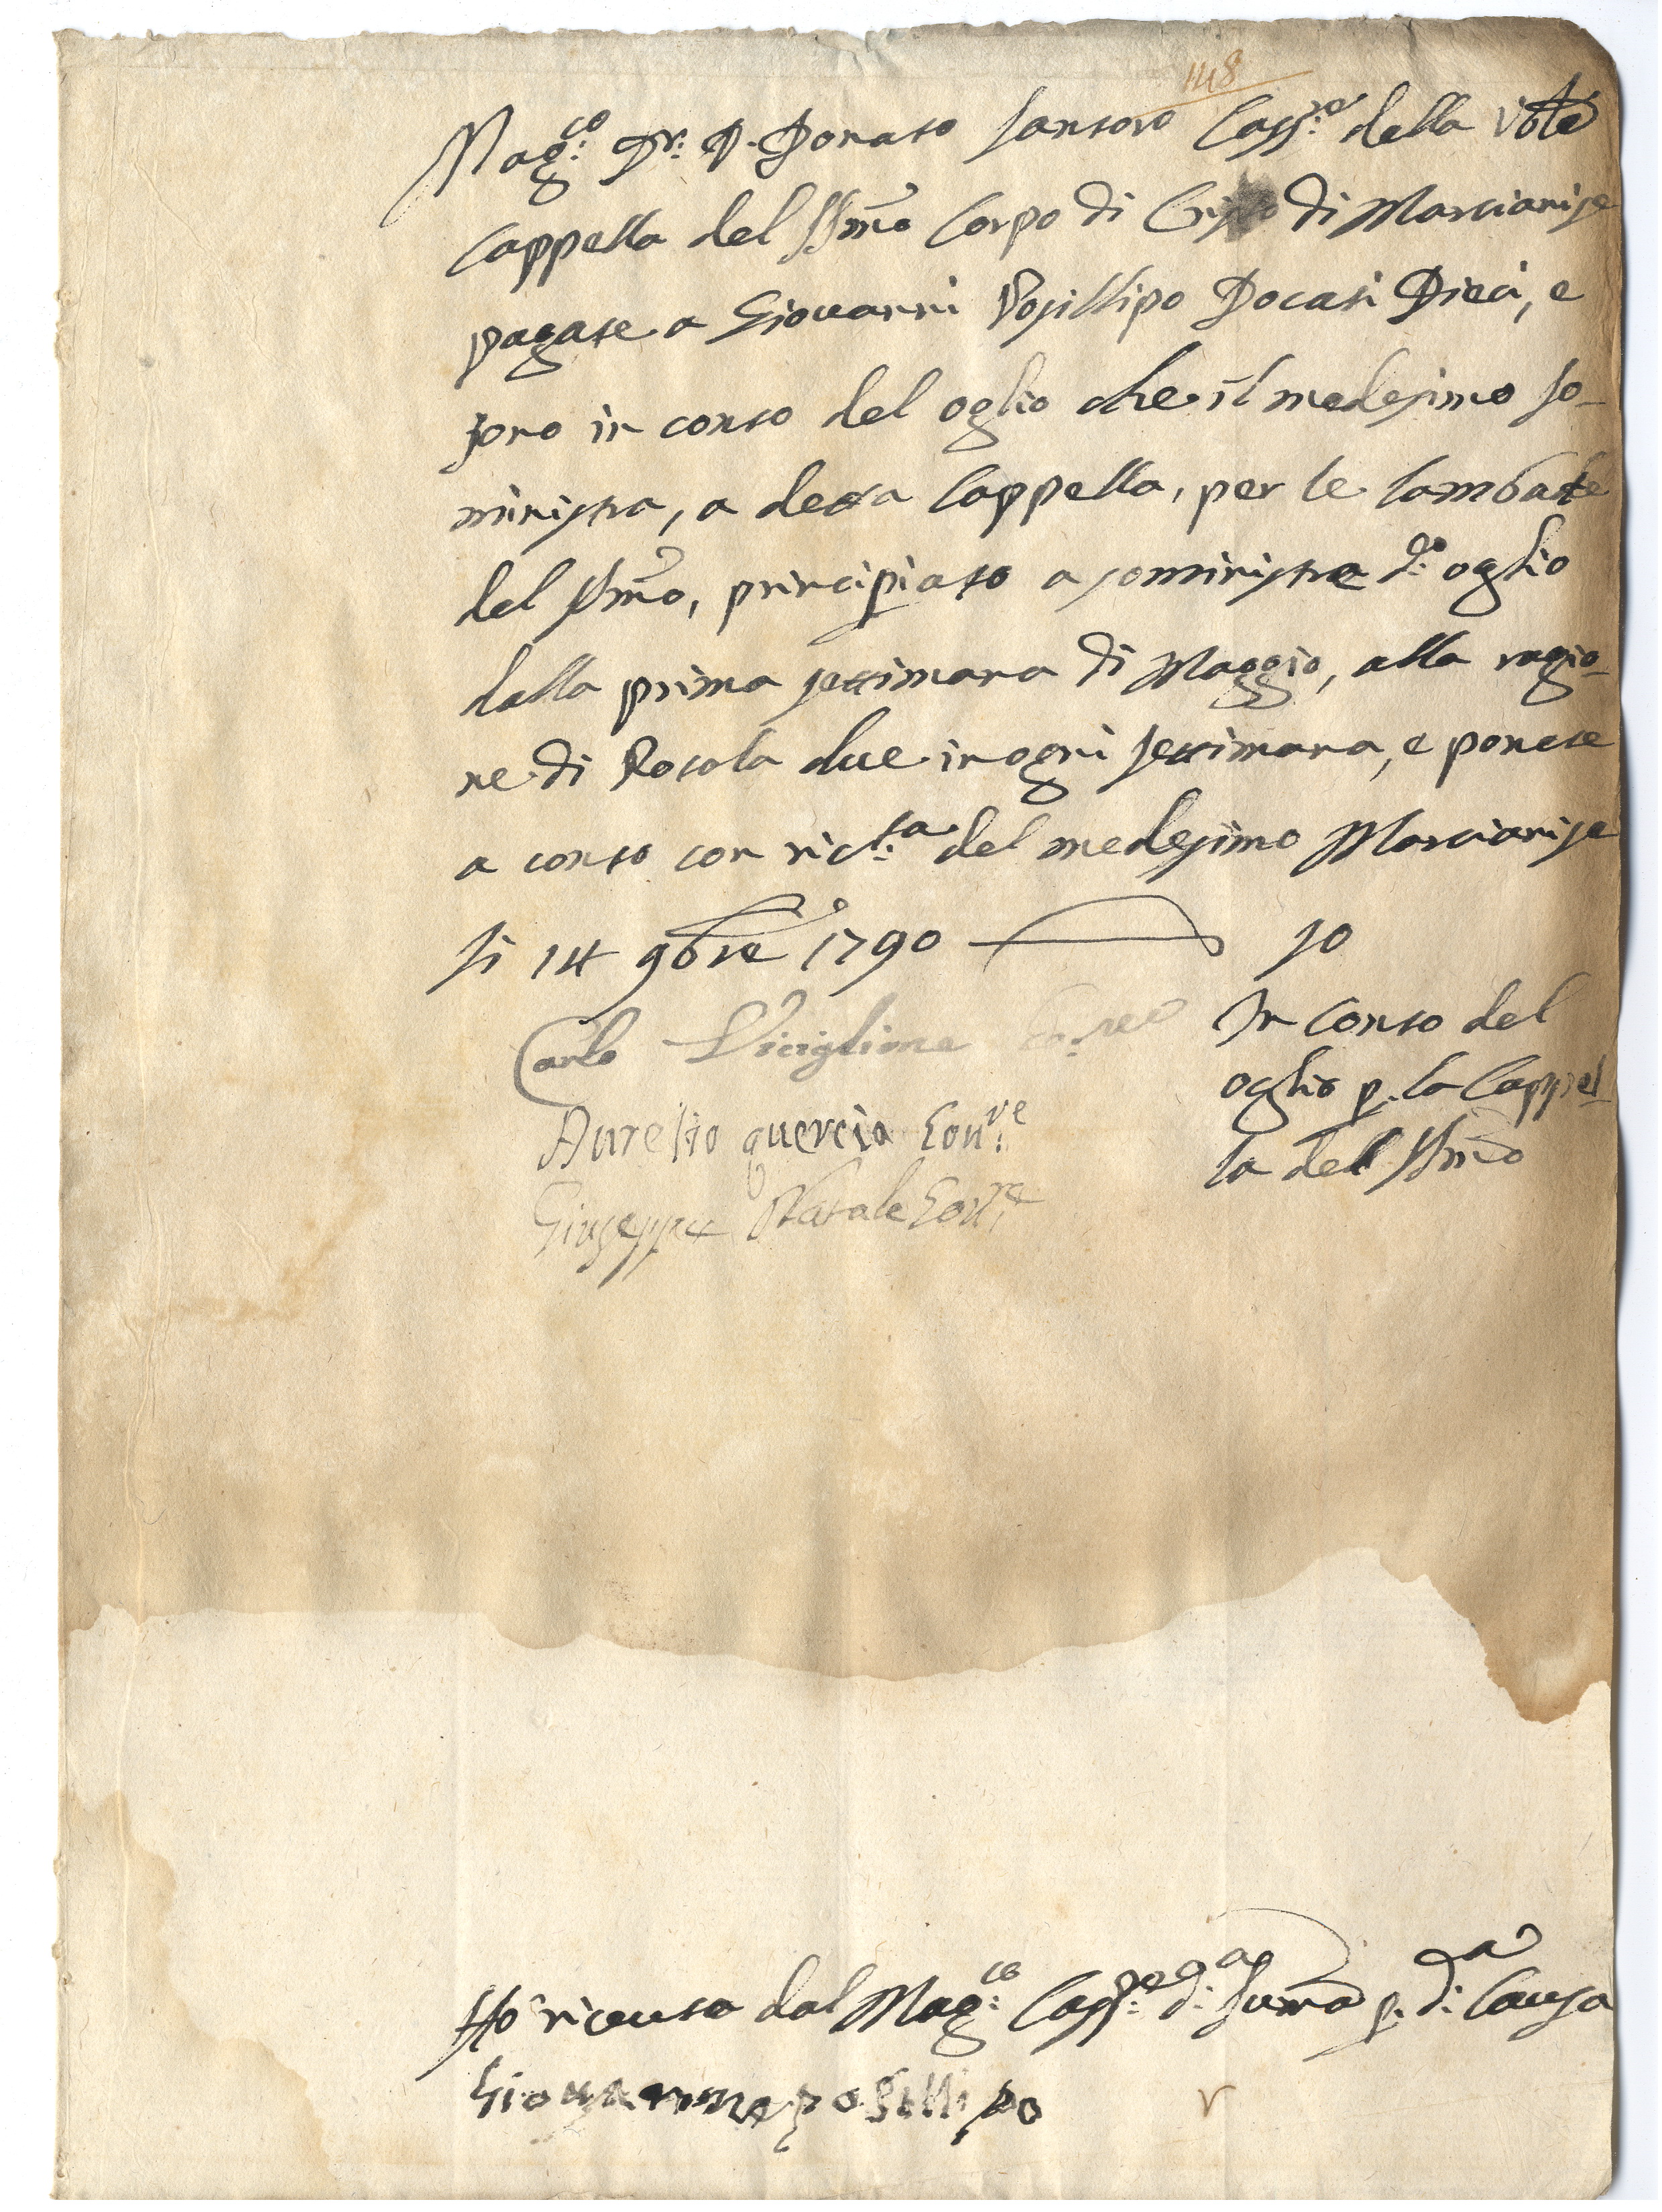 148
Mag:co Dr: D. Donato Santoro Cass:re della Vble
Cappella del SSmo Corpo di Cristo di Marcianise
pagate a Giovanni Posillipo Docati Dieci, e
sono in conto del oglio che il medesimo so-
ministra, a detta Cappella, per le Lambade
del SSmo, principiato a somministra d:o oglio
dalla prima settimana di Maggio, alla ragio-
ne di Rotola due in ogni settimana, e ponete
a conto con ric:ta del medesimo Marcianise
li 14 9bre 1790 10
Carlo Viciglione
In conto del
oglio p. la Cappel-
la del SSmo
Aurelio quercia Gou:re
Giuseppe Natale Gou:re
Ho ricevuto dal Mag:co Cass:re d:a Suma p. d:a Causa
Giovanne posillipo